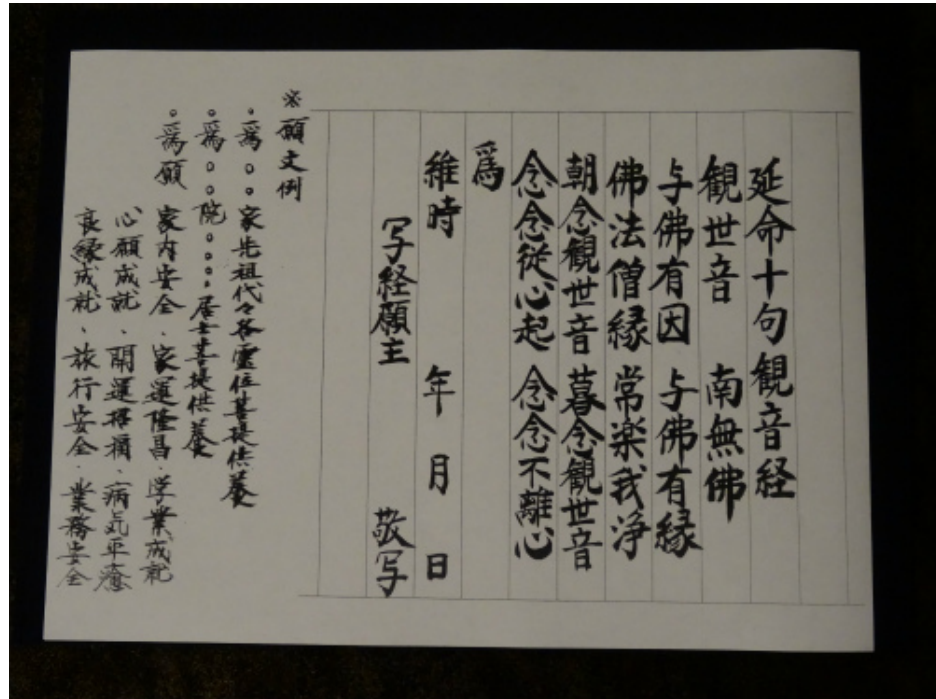 延命十句観音経
観世音 南無佛
与佛有因 与佛有縁
佛法僧縁 常楽我浄
朝念観世音 暮念観世音
念念従心起 念念不離心
爲
維時 年 月 日
写経願主 敬写
※願文例
・爲○○家先祖代々各霊位菩提供養
・爲○○院○○○○居士菩提供養
・爲願 家内安全、家運隆昌、学業成就
心願成就、開運招福、病気平癒
良縁成就、旅行安全、業務安全